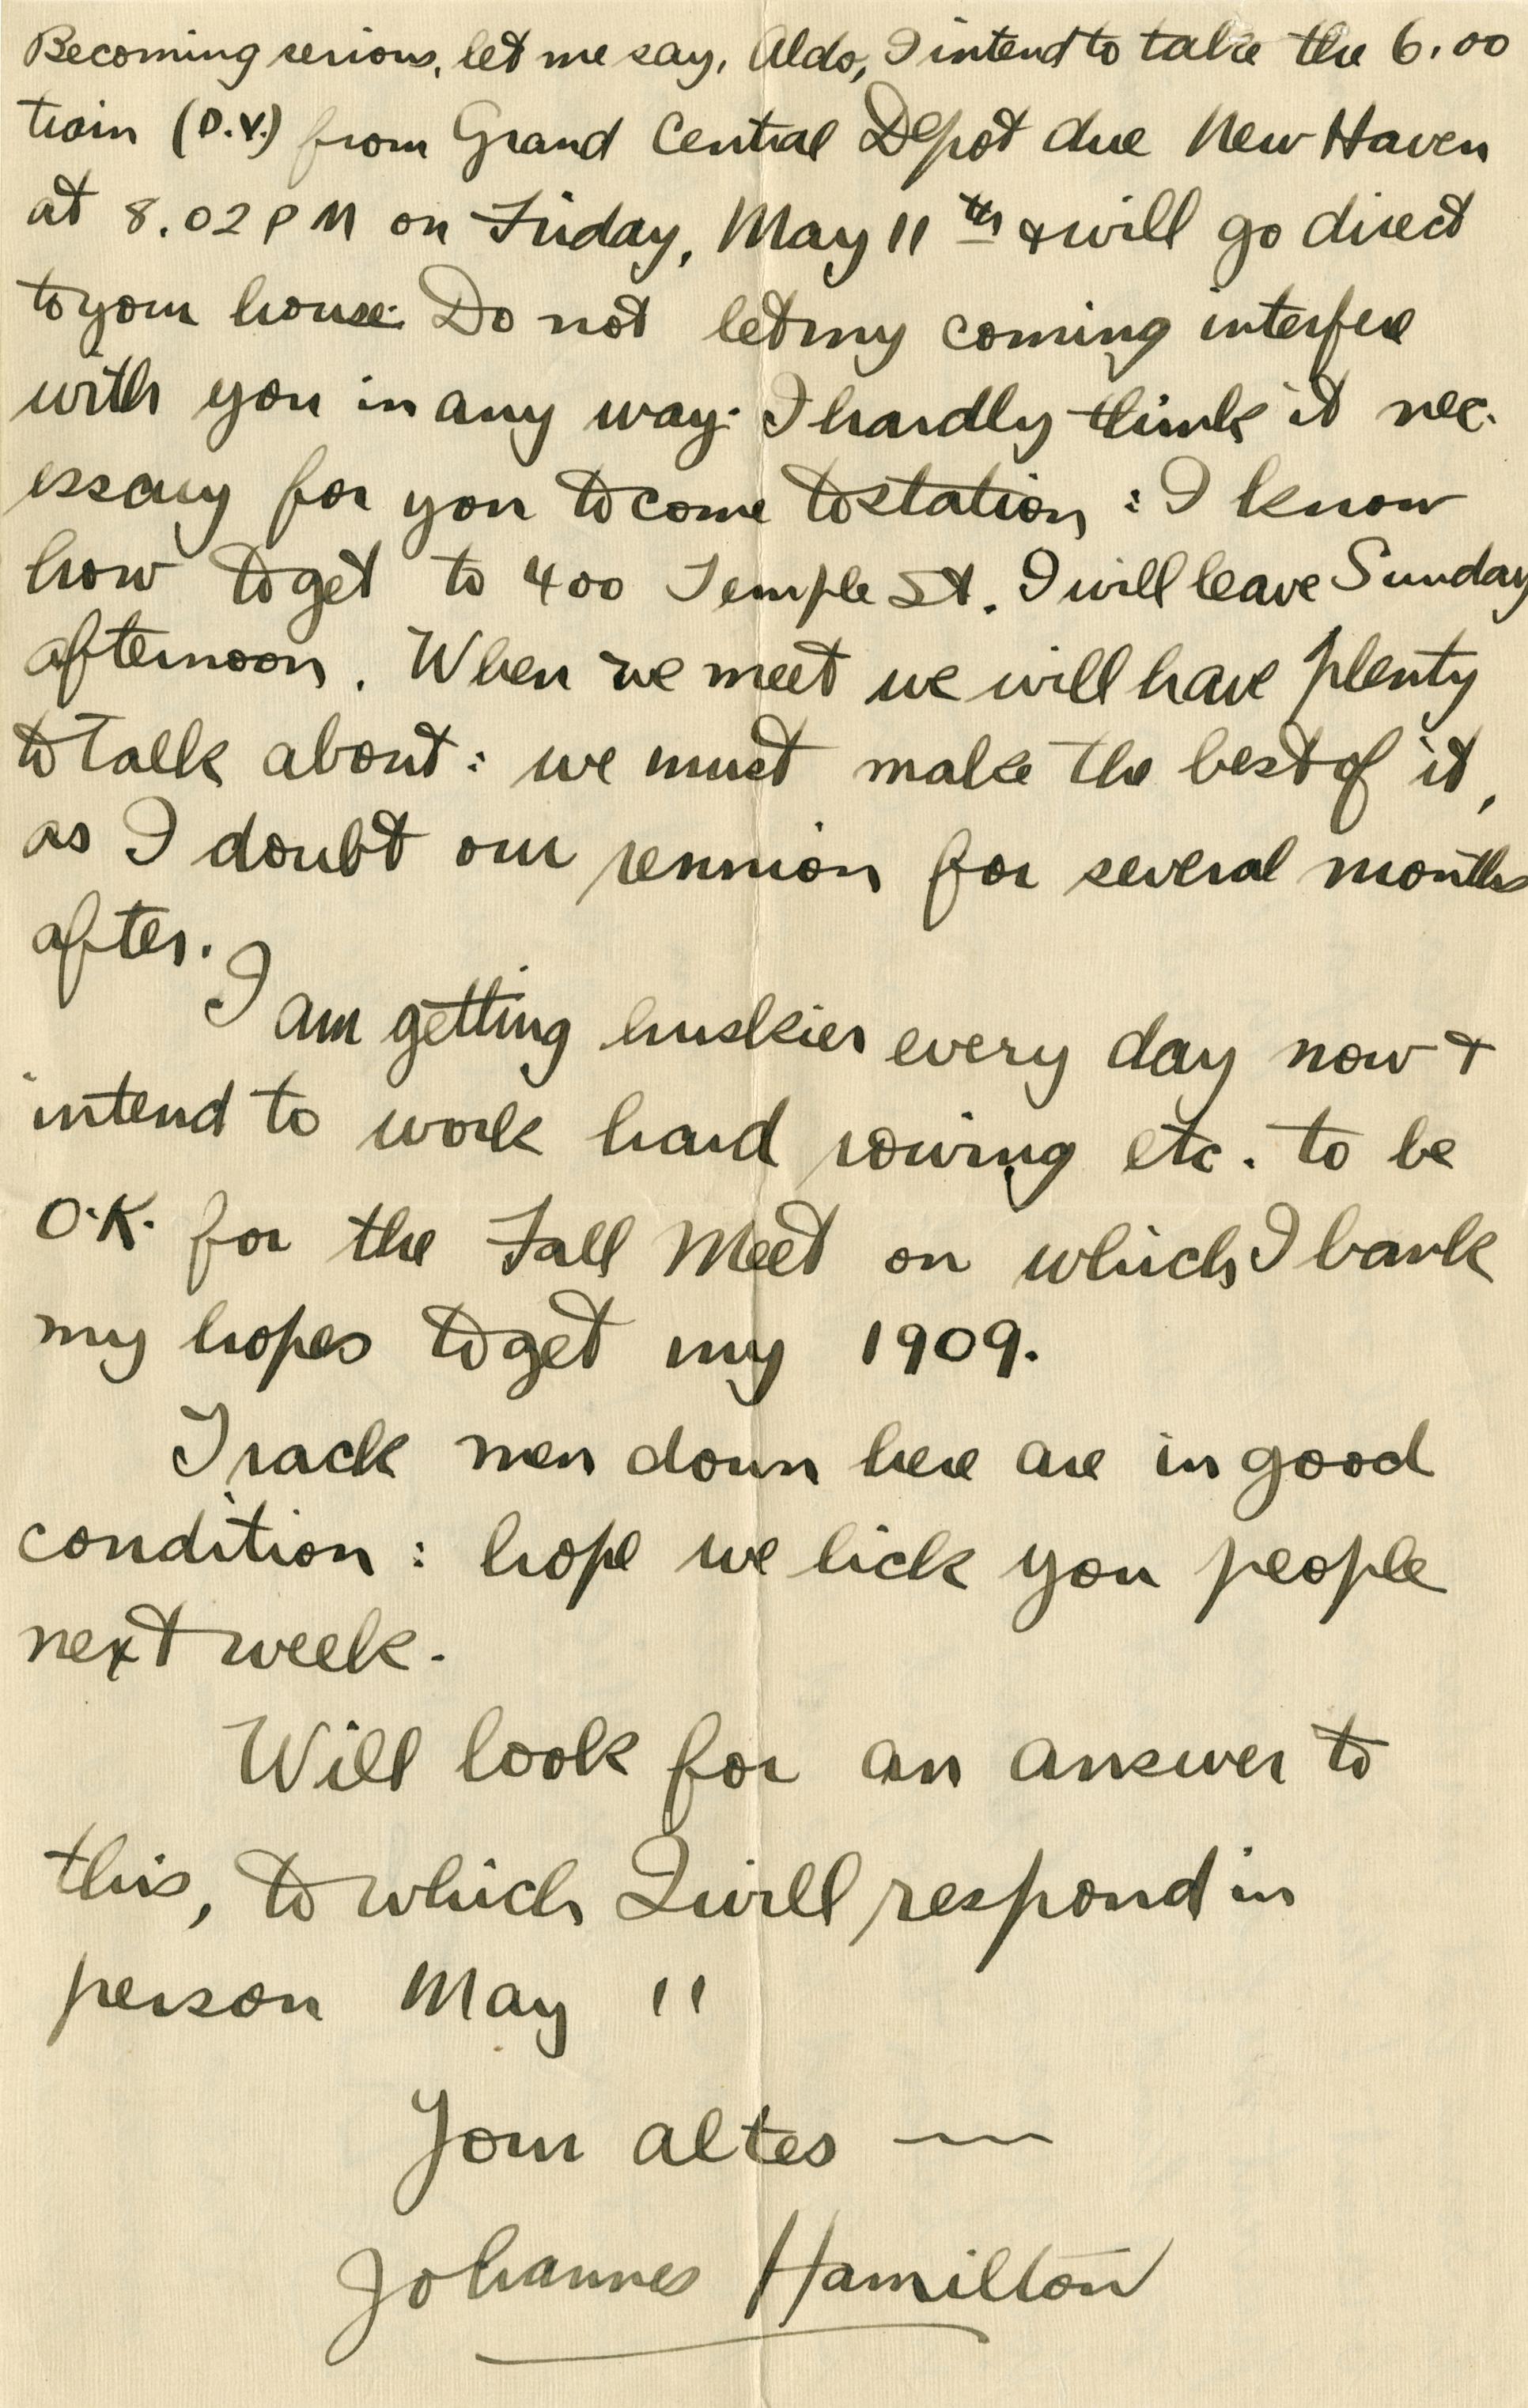 Becoming serious, let me say, Aldo, I intend to take the 6.00
train (D.V.) from Grand Central Depot due New Haven
at 8.02 PM on Friday, May 11th & will go direct
to your house. Do not let my coming interfere
with you in any way. I hardly think it nec-
essary for you to come to station : I know
how to get to 400 Temple St. I will leave Sunday
afternoon. When we meet we will have plenty
to talk about : we must make the best of it,
as I doubt our reunion for several months
after.
I am getting huskier every day now &
intend to work hard rowing etc. to be
O.K. for the Fall Meet on which I bank
my hopes to get my 1909.
Track men down here are in good
condition : hope we lick you people
next week.
Will look for an answer to
this, to which I will respond in
person May 11
Your altes —
Johannes Hamilton